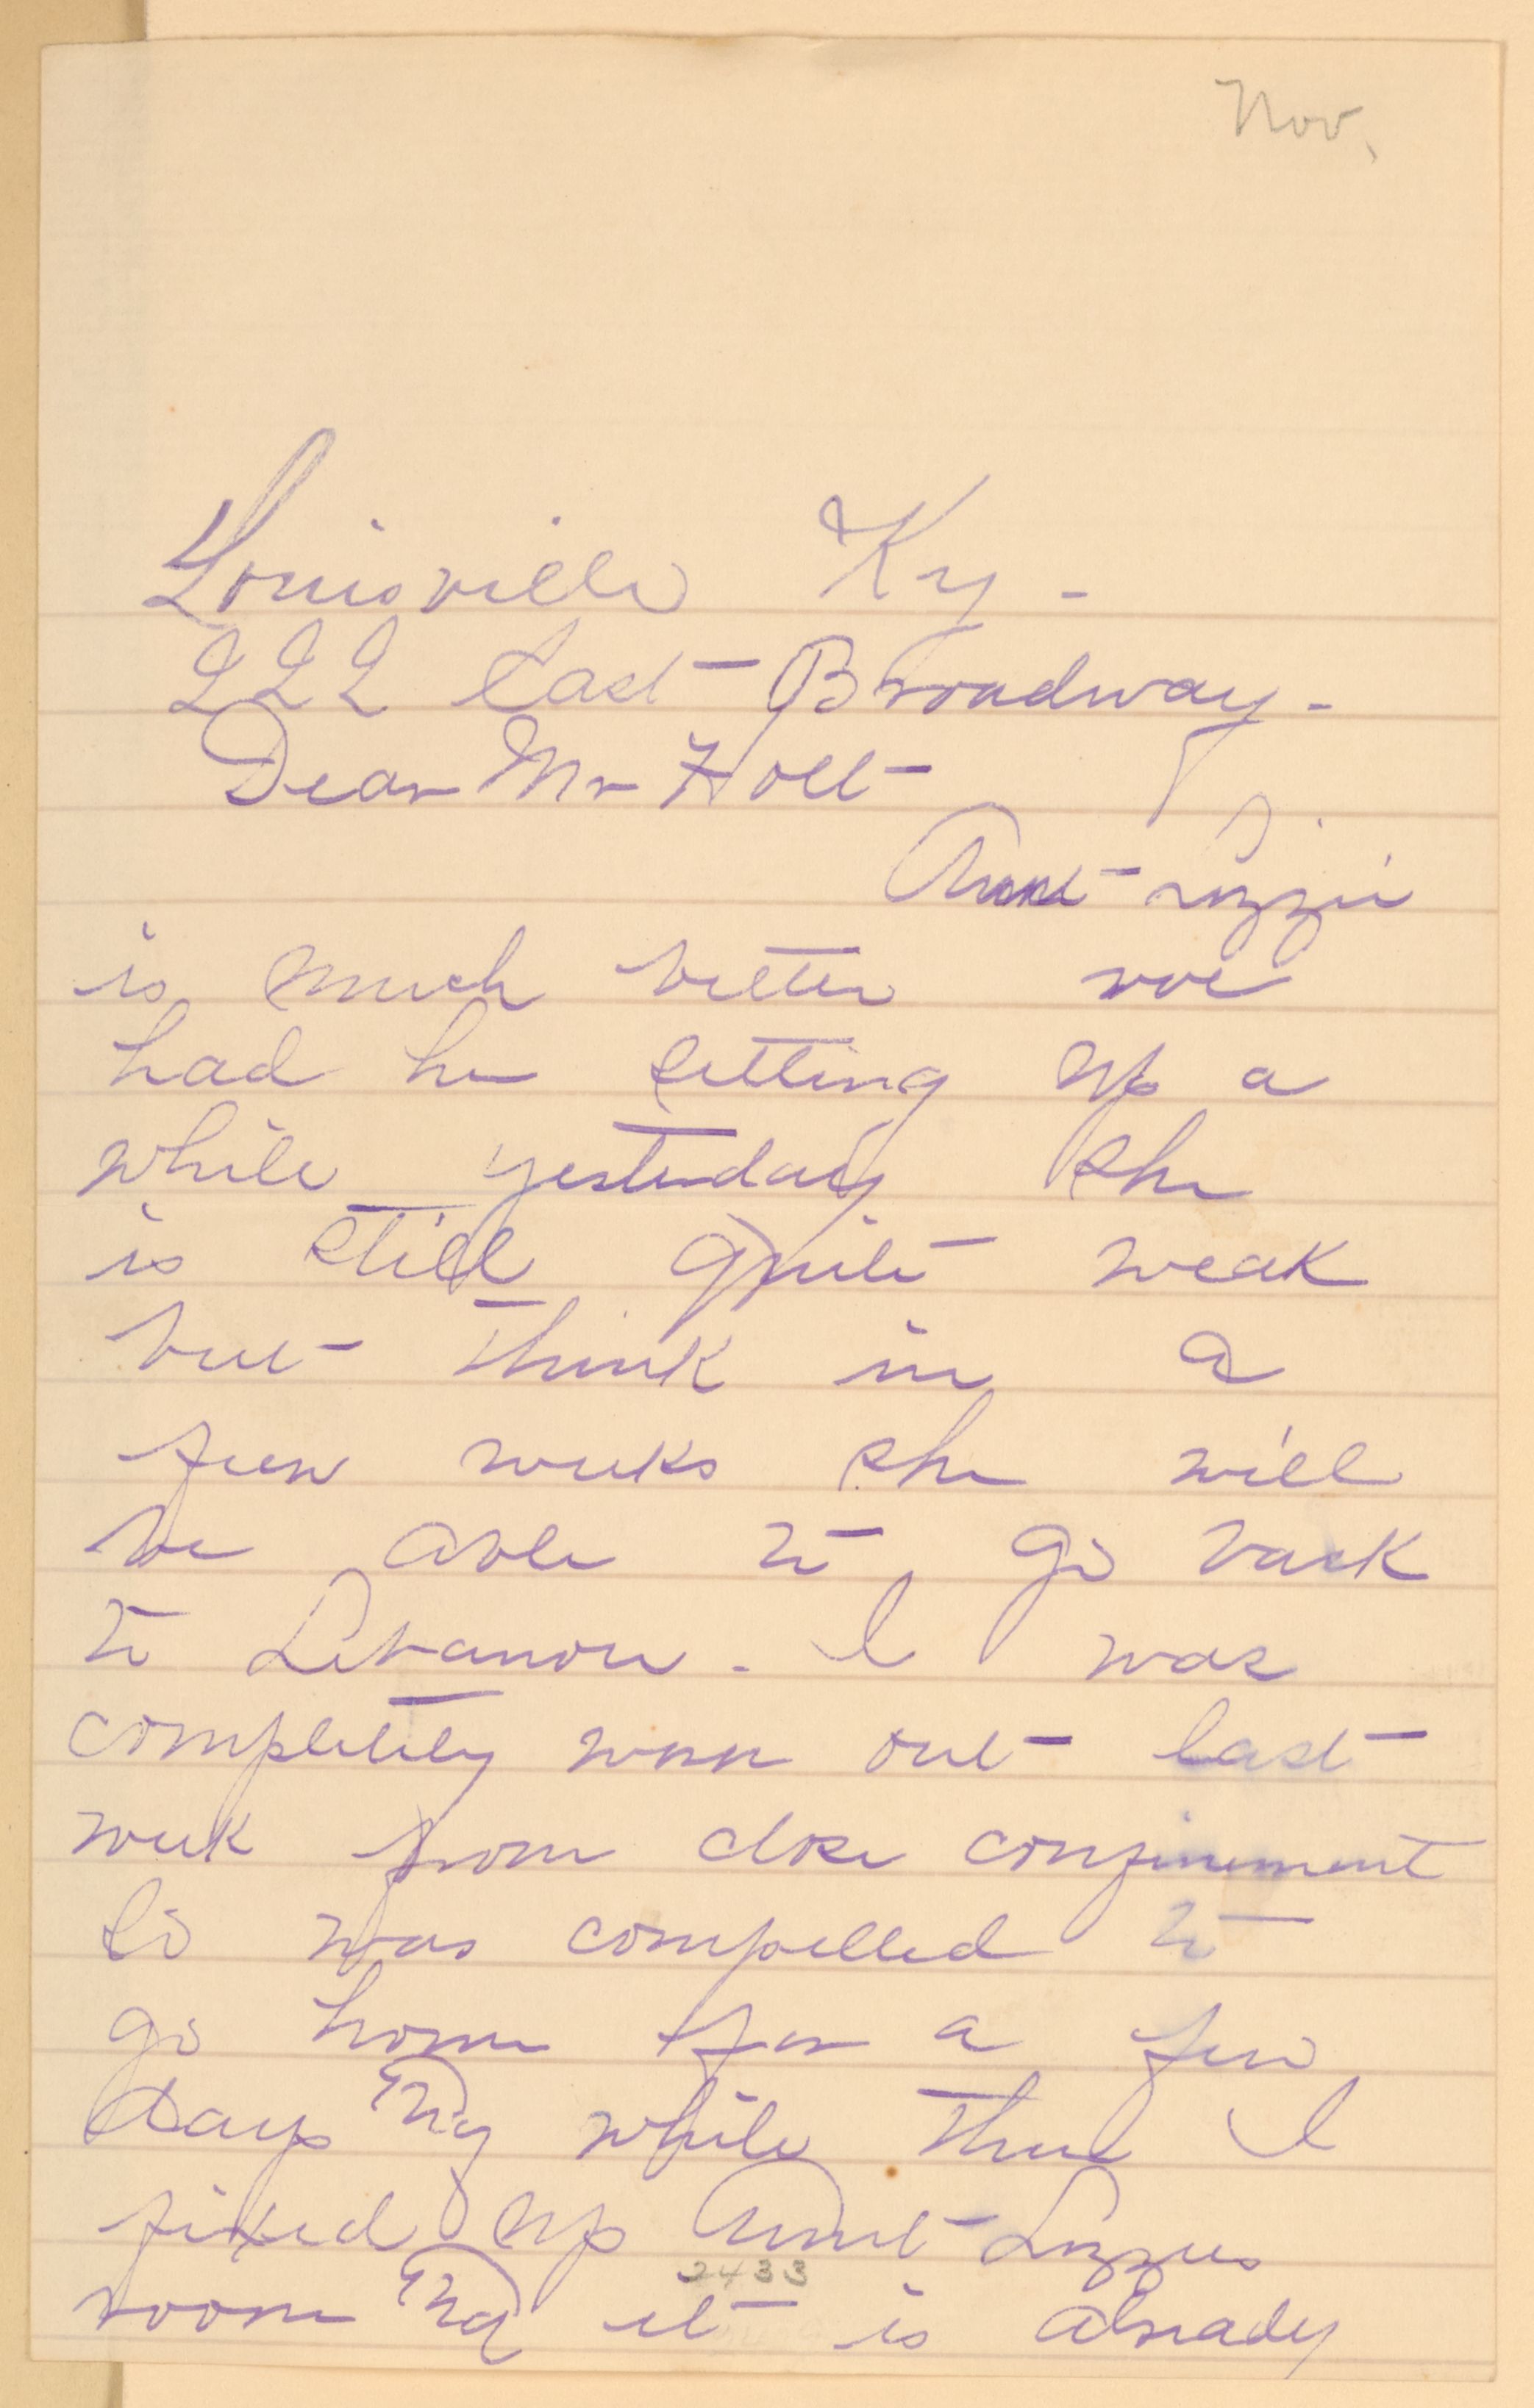 Nov.
Louisville Ky -
222 East Broadway -
Dear Mr Holt
Aunt Lizzie
is much better we
had her sitting up a
while yesterday she
is still quite weak
but think in a
few weeks she will
be able to go back
to Lebanon - I was
completely worn out last
week from close confinement
So was compelled to
go home for a few
days & while there I
fixed up Aunt Lizzies
2433
room & it is already